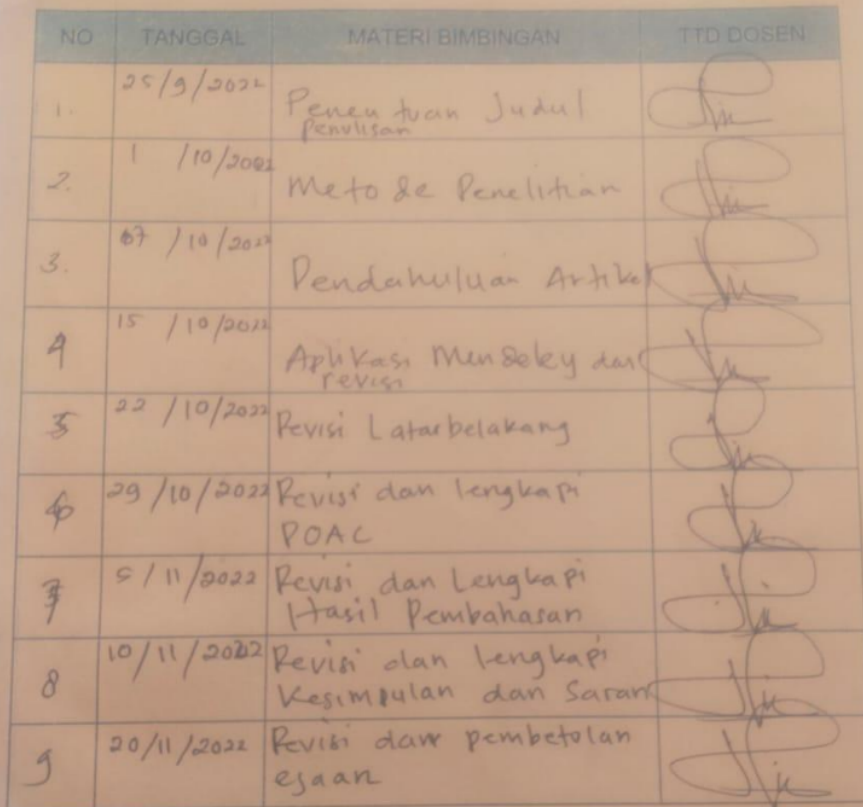 NO TANGGAL MATERI BIMBINGAN TTD DOSEN
1. 25/9/2022 Penentuan Judul
Penulisan
2. 1 /10/2022 Metode Penelitian
3. 07 /10/2022 Pendahuluan Artikel
4 15 /10/2022 Aplikasi Mendeley dan
revisi
5 22 /10/2022 Revisi Latarbelakang
6 29/10/2022 Revisi dan lengkapi
POAC
7 5/11/2022 Revisi dan Lengkapi
Hasil Pembahasan
8 10/11/2022 Revisi dan lengkapi
Kesimpulan dan Saran
9 20/11/2022 Revisi dan pembetolan
ejaan